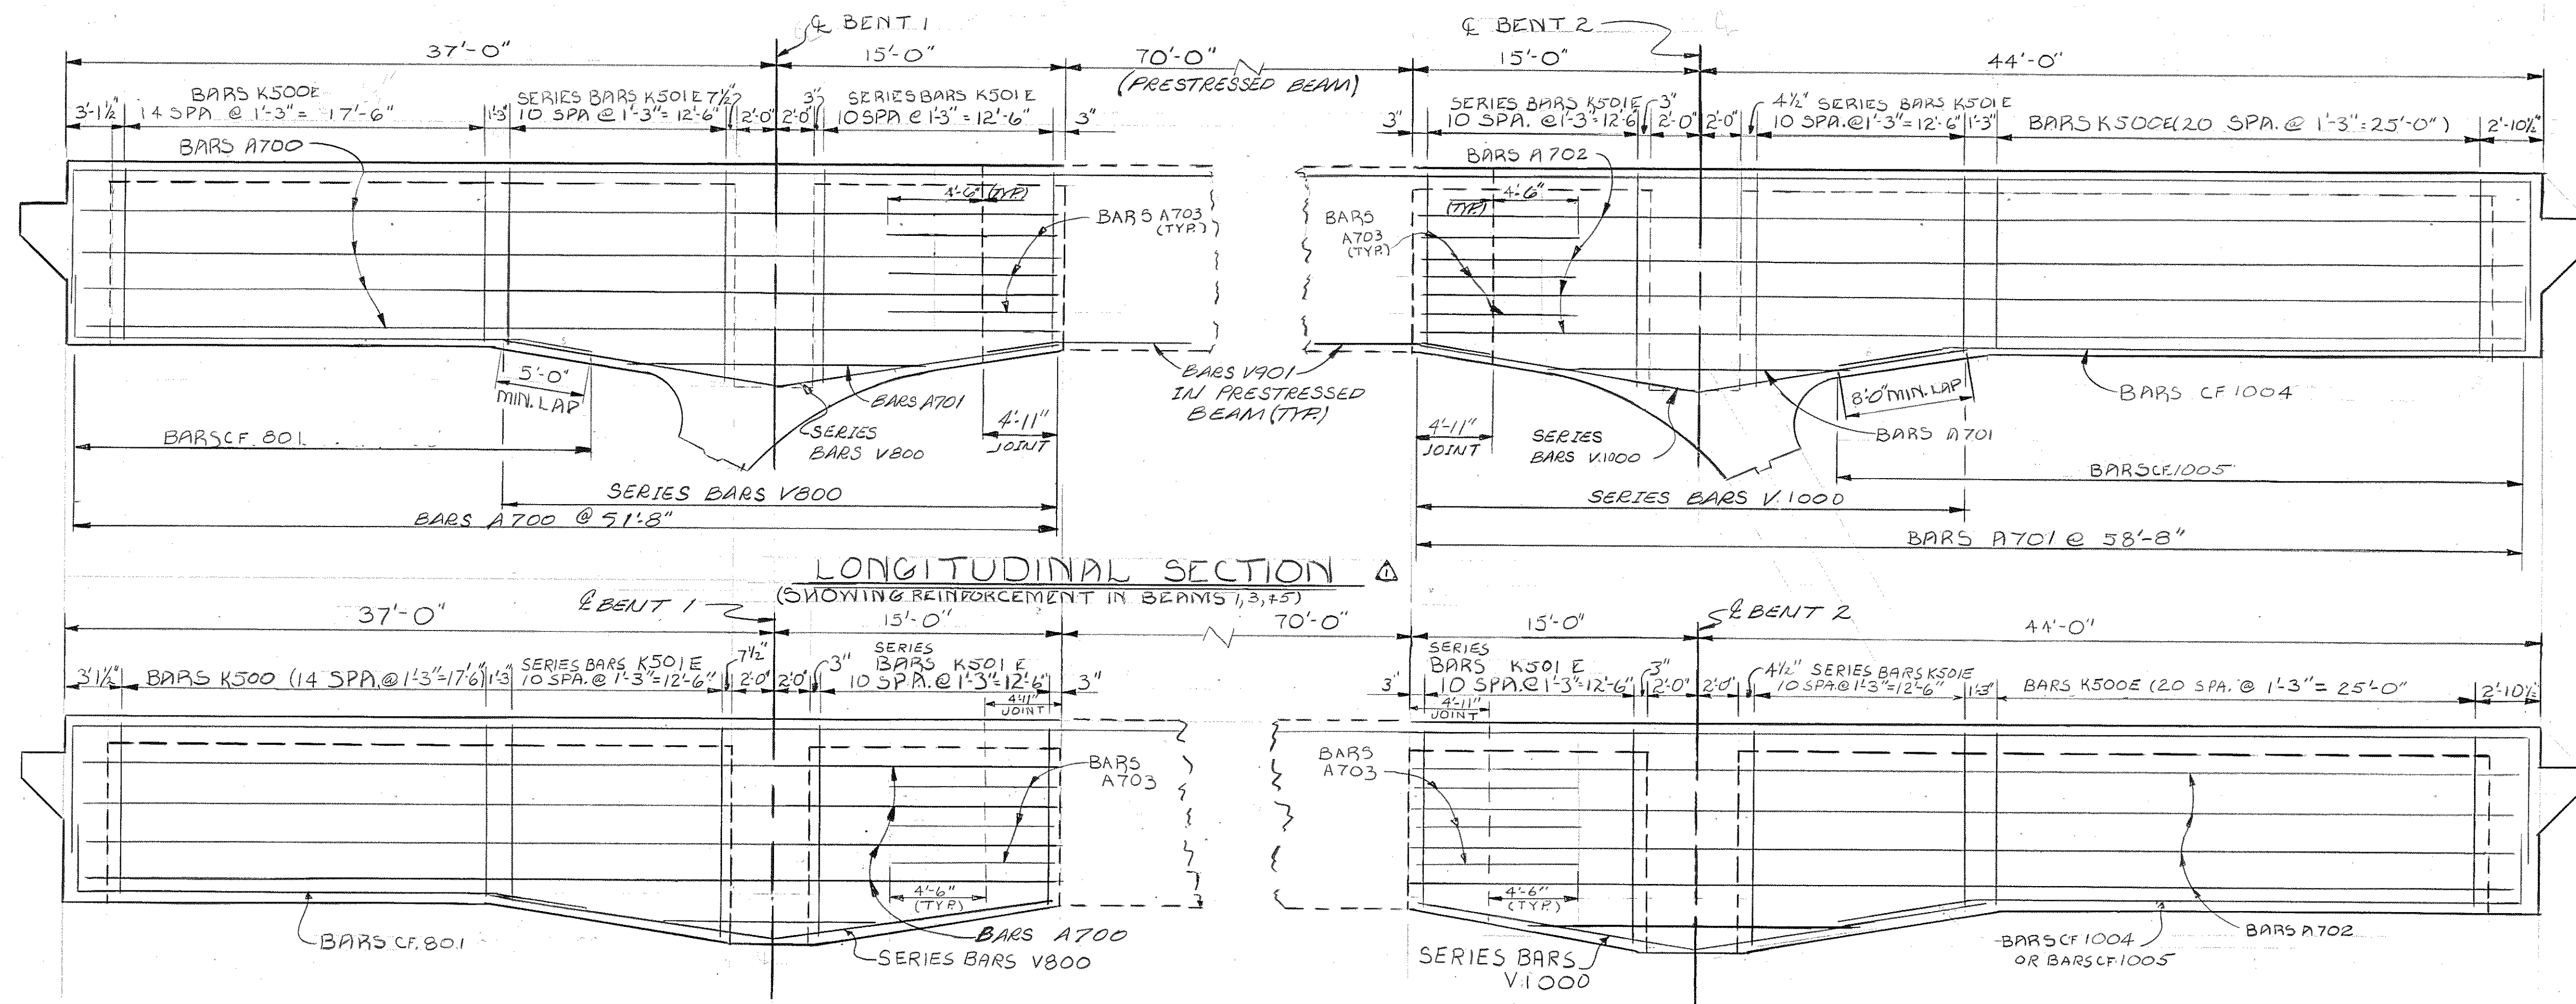 ℄ BENT 1
℄ BENT 2
37'-0"
15'-0"
70'-0"
(PRESTRESSED BEAM)
15'-0"
44'-0"
BARS K500E
3'-1½" 14 SPA @ 1'-3" = 17'-6"
1'-3"
SERIES BARS K501E 7½"
10 SPA @ 1'-3" = 12'-6"
2'-0"
2'-0"
3"
SERIES BARS K501E
10 SPA @ 1'-3" = 12'-6"
3"
3"
SERIES BARS K501E
10 SPA. @ 1'-3" = 12'-6
3"
2'-0"
2'-0"
4½" SERIES BARS K501E
10 SPA. @ 1'-3" = 12'-6"
1'-3"
BARS K500E (20 SPA. @ 1'-3" = 25'-0")
2'-10½"
BARS A700
4'-6" (TYP.)
BARS A703
(TYP.)
BARS A702
4'-6"
(TYP.)
BARS
A703
(TYP.)
5'-0"
MIN. LAP
BARS CF. 801
BARS A701
SERIES
BARS V800
4'-11"
JOINT
BARS V901
IN PRESTRESSED
BEAM (TYP.)
4'-11"
JOINT
SERIES
BARS V.1000
8'-0" MIN. LAP
BARS A701
BARS CF 1004
BARS CF.1005
SERIES BARS V800
BARS A700 @ 51'-8"
SERIES BARS V.1000
BARS A701 @ 58'-8"
LONGITUDINAL SECTION 1
(SHOWING REINFORCEMENT IN BEAMS 1,3,+5)
℄ BENT 1
℄ BENT 2
37'-0"
15'-0"
70'-0"
15'-0"
44'-0"
3'1½"
BARS K500 (14 SPA. @ 1'-3" = 17'6)
1'-3"
SERIES BARS K501E
10 SPA. @ 1'-3" = 12'-6"
7½"
2'-0"
2'-0"
3"
SERIES
BARS K501E
10 SPA. @ 1'-3" = 12'-6"
3"
4'-11"
JOINT
3"
SERIES
BARS K501E
10 SPA. @ 1'-3" = 12'-6"
4'-11"
JOINT
3"
2'-0"
2'-0"
4½" SERIES BARS K501E
10 SPA @ 1'-3" = 12'-6"
1'-3"
BARS K500E (20 SPA. @ 1'-3" = 25'-0"
2'-10½"
BARS
A703
BARS
A703
4'-6"
(TYP.)
4'-6"
(TYP.)
BARS CF. 801
BARS A700
SERIES BARS V800
SERIES BARS
V.1000
BARS CF 1004
OR BARS CF.1005
BARS A.702